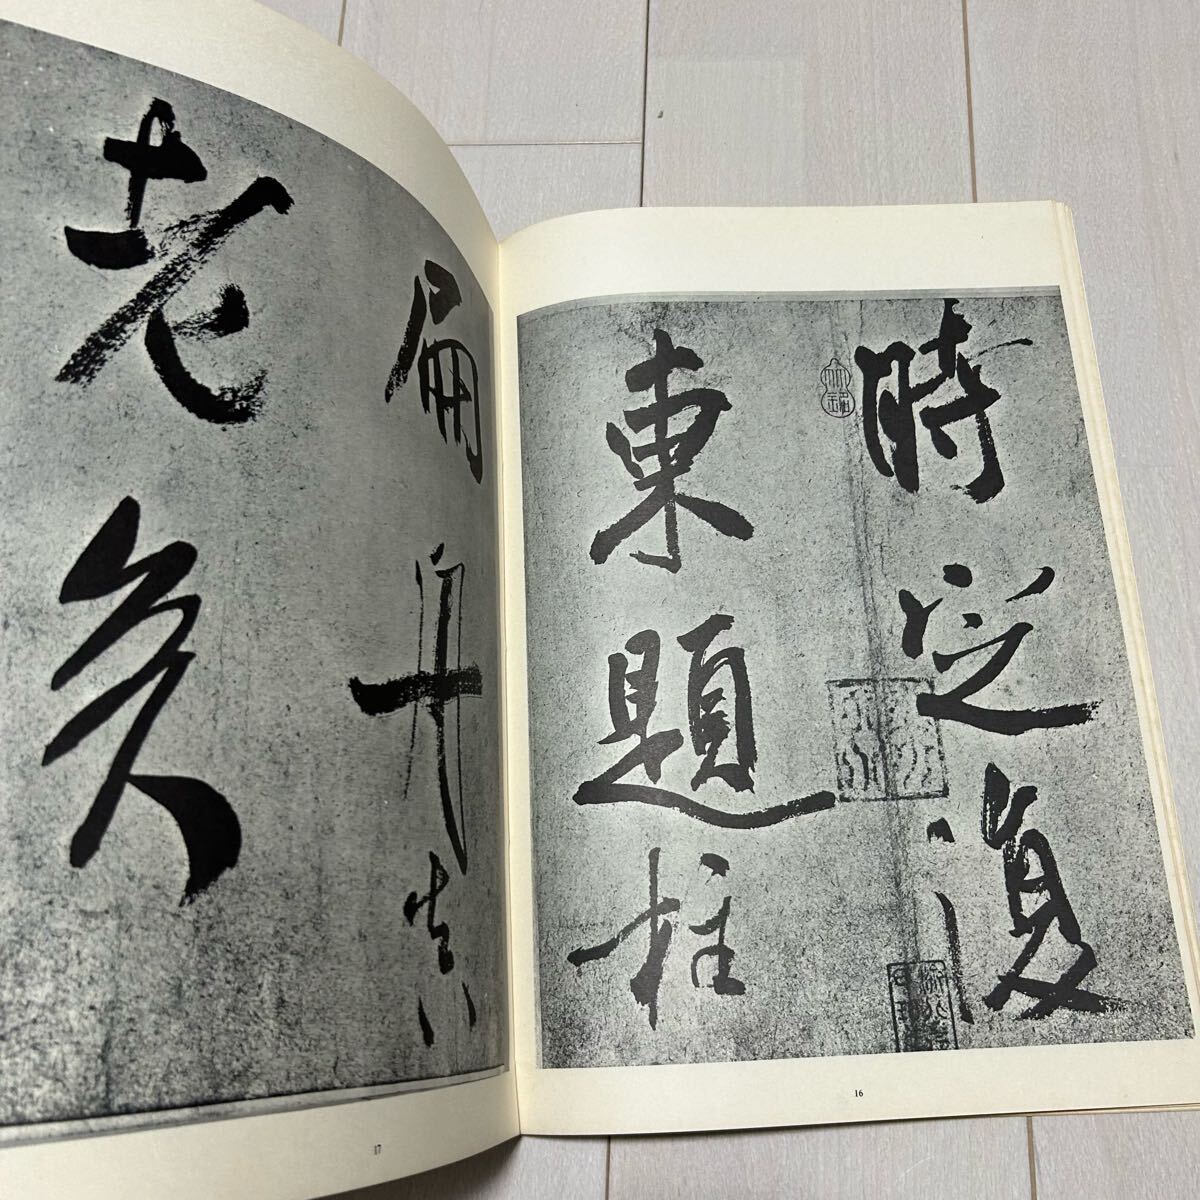 時定復
東題柱
16
扁舟真
老矣
17